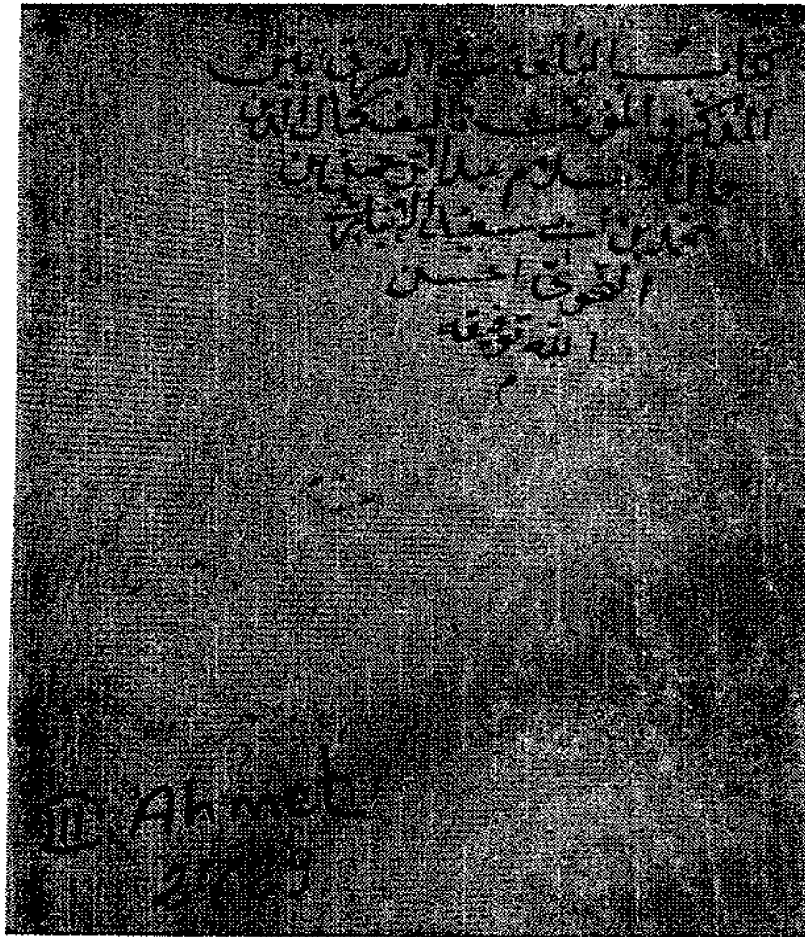 كتاب البلغة في الفرق بين
المذكر والمؤنث تأليف كمال الدين
جمال الإسلام عبد الرحمن بن
محمد بن أبي سعيد الأنباري
النحوي أحسن
الله توفيقه
م
III. Ahmet